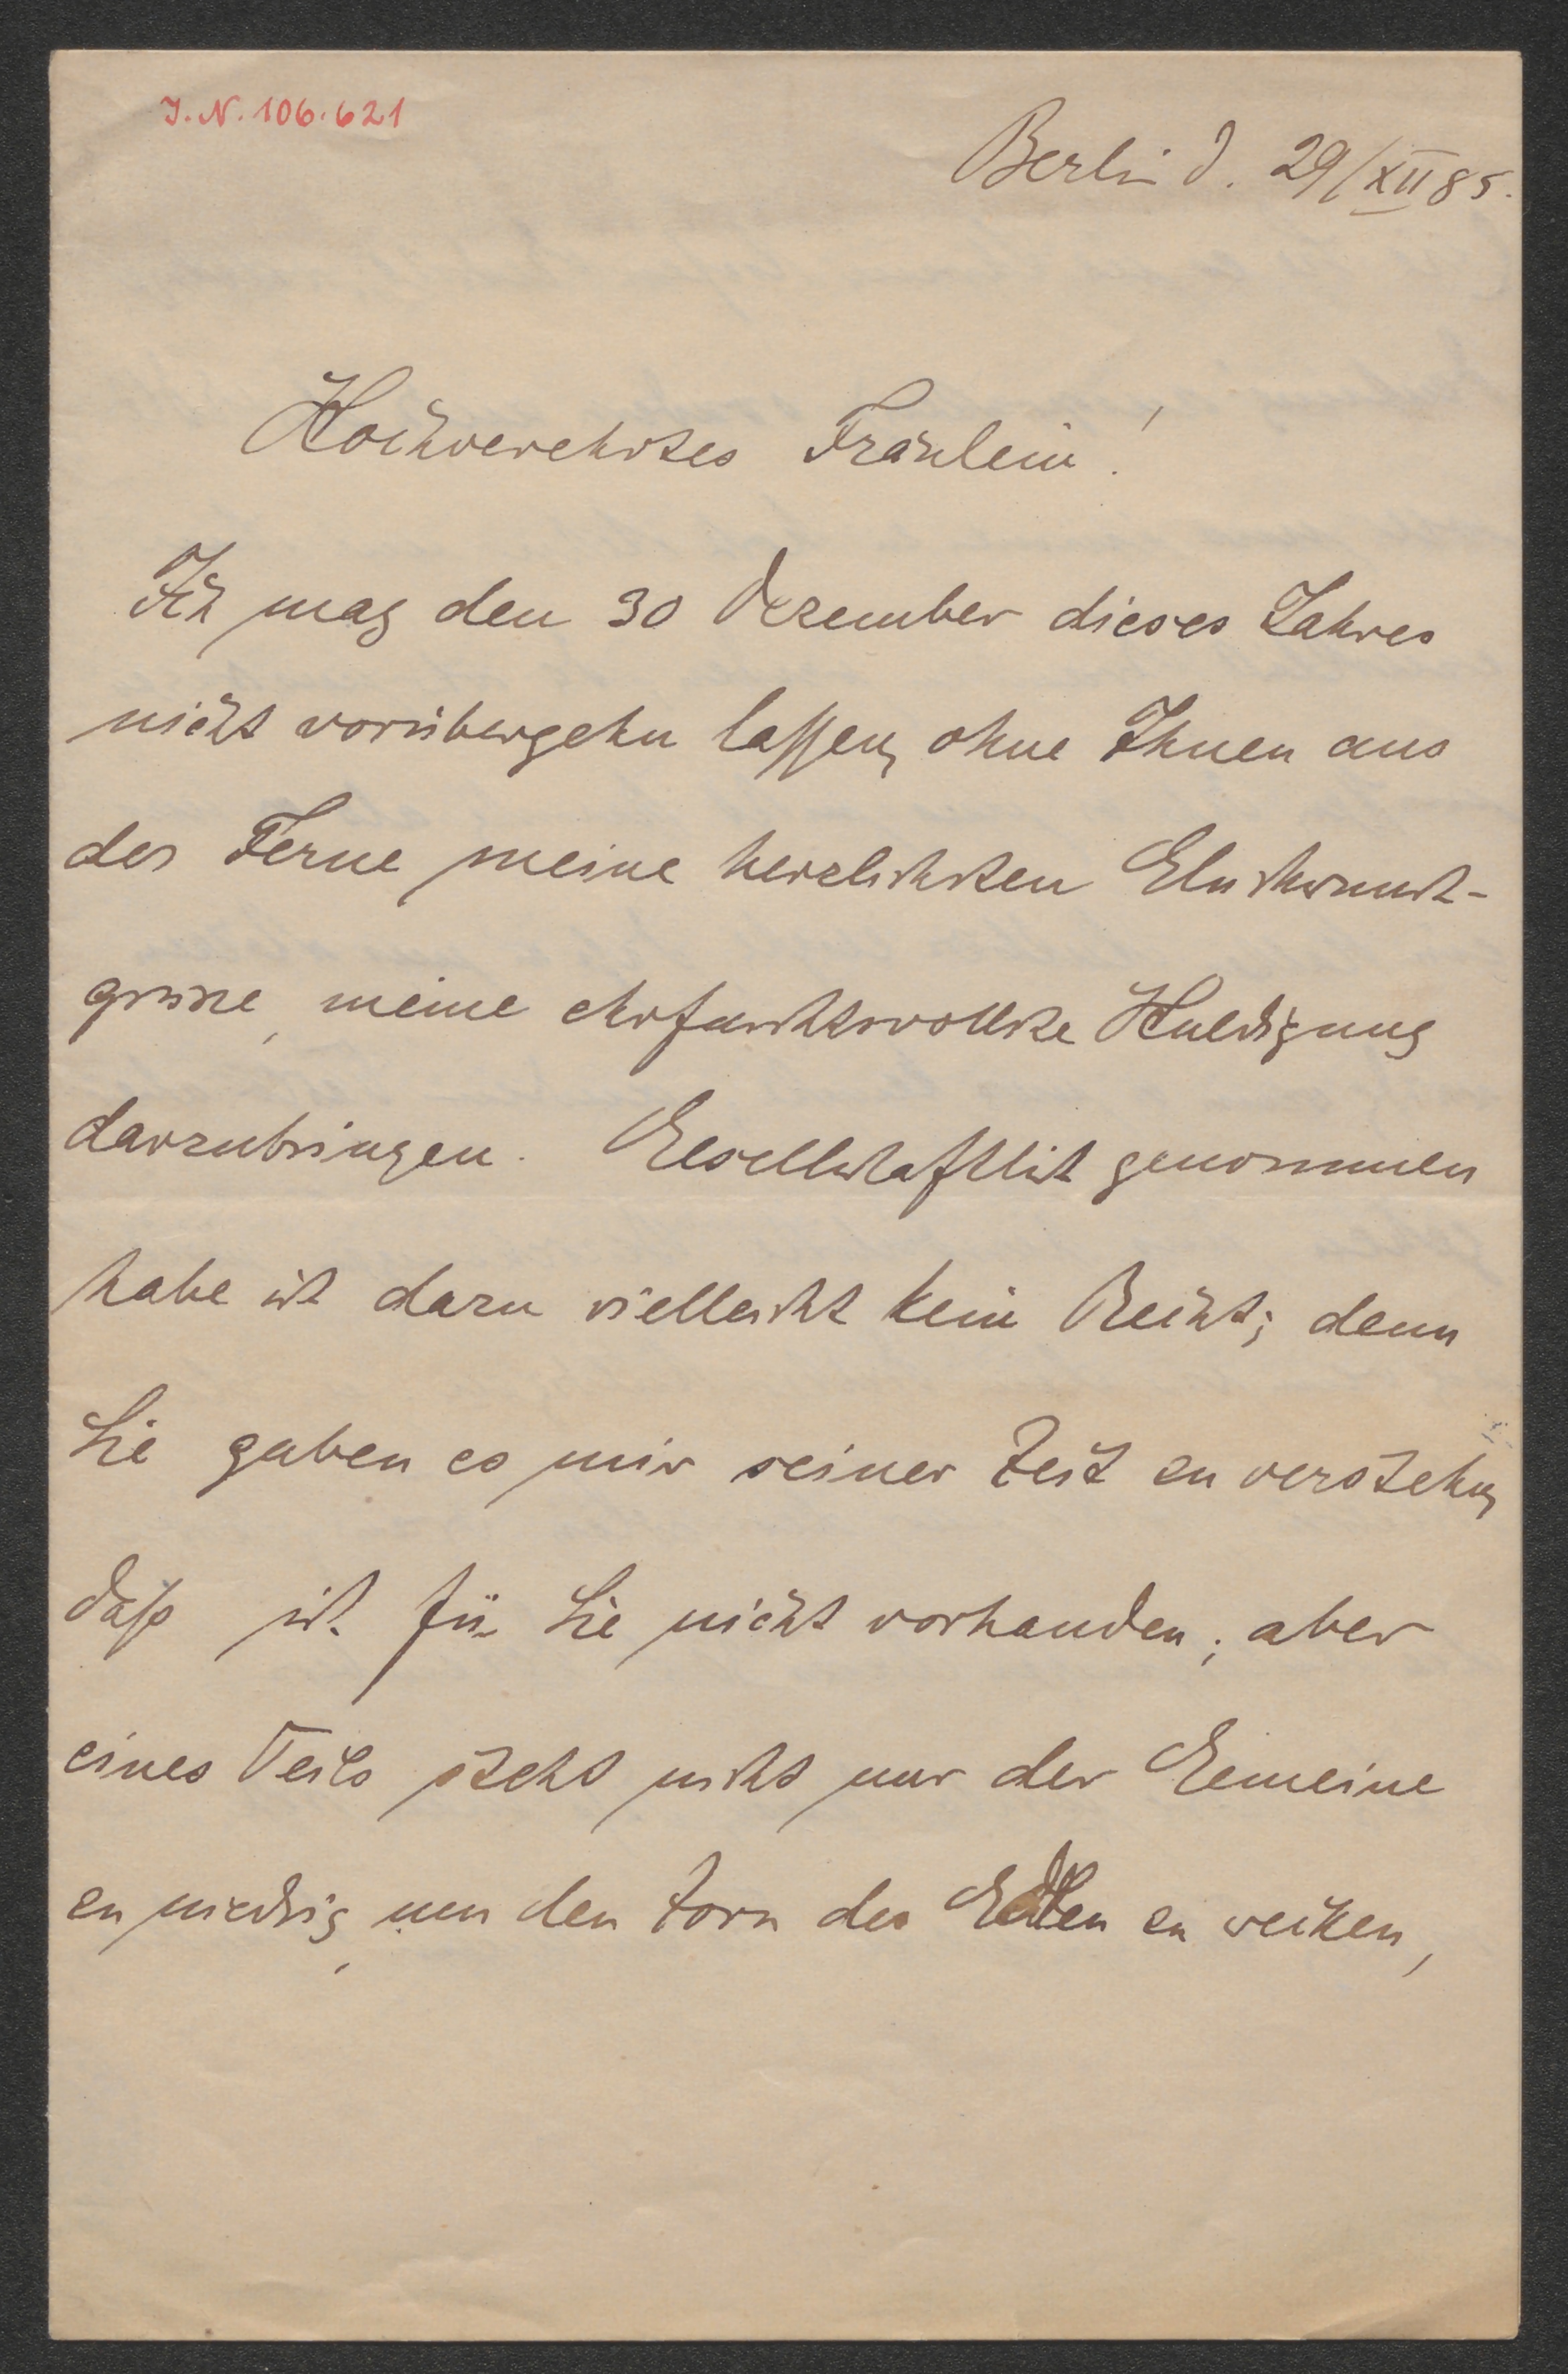 J.N. 106.621
Berlin d. 29/XII 85.
Hochverehrtes Fräulein!
Ich mag den 30 Dezember dieses Jahres
nicht vorübergehn lassen, ohne Ihnen aus
der Ferne meine herzlichsten Glückwunsch-
grüsse, meine ehrfurchtsvollste Huldigung
darzubringen. Gesellschaftlich genommen
habe ich dazu vielleicht kein Recht; denn
Sie gaben es mir seiner Zeit zu verstehn,
daß ich für Sie nicht vorhanden; aber
eines Teils steht nicht nur der Gemeine
zu niedrig, um den Zorn des Edlen zu wecken,